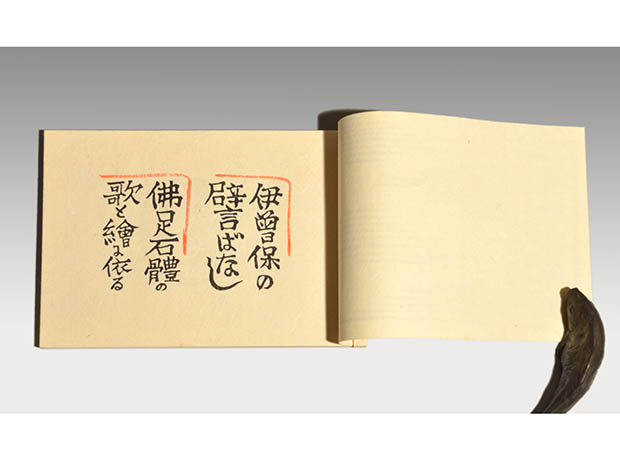 伊曾保の
辟言ばなし
佛足石體の
歌と繪に依る